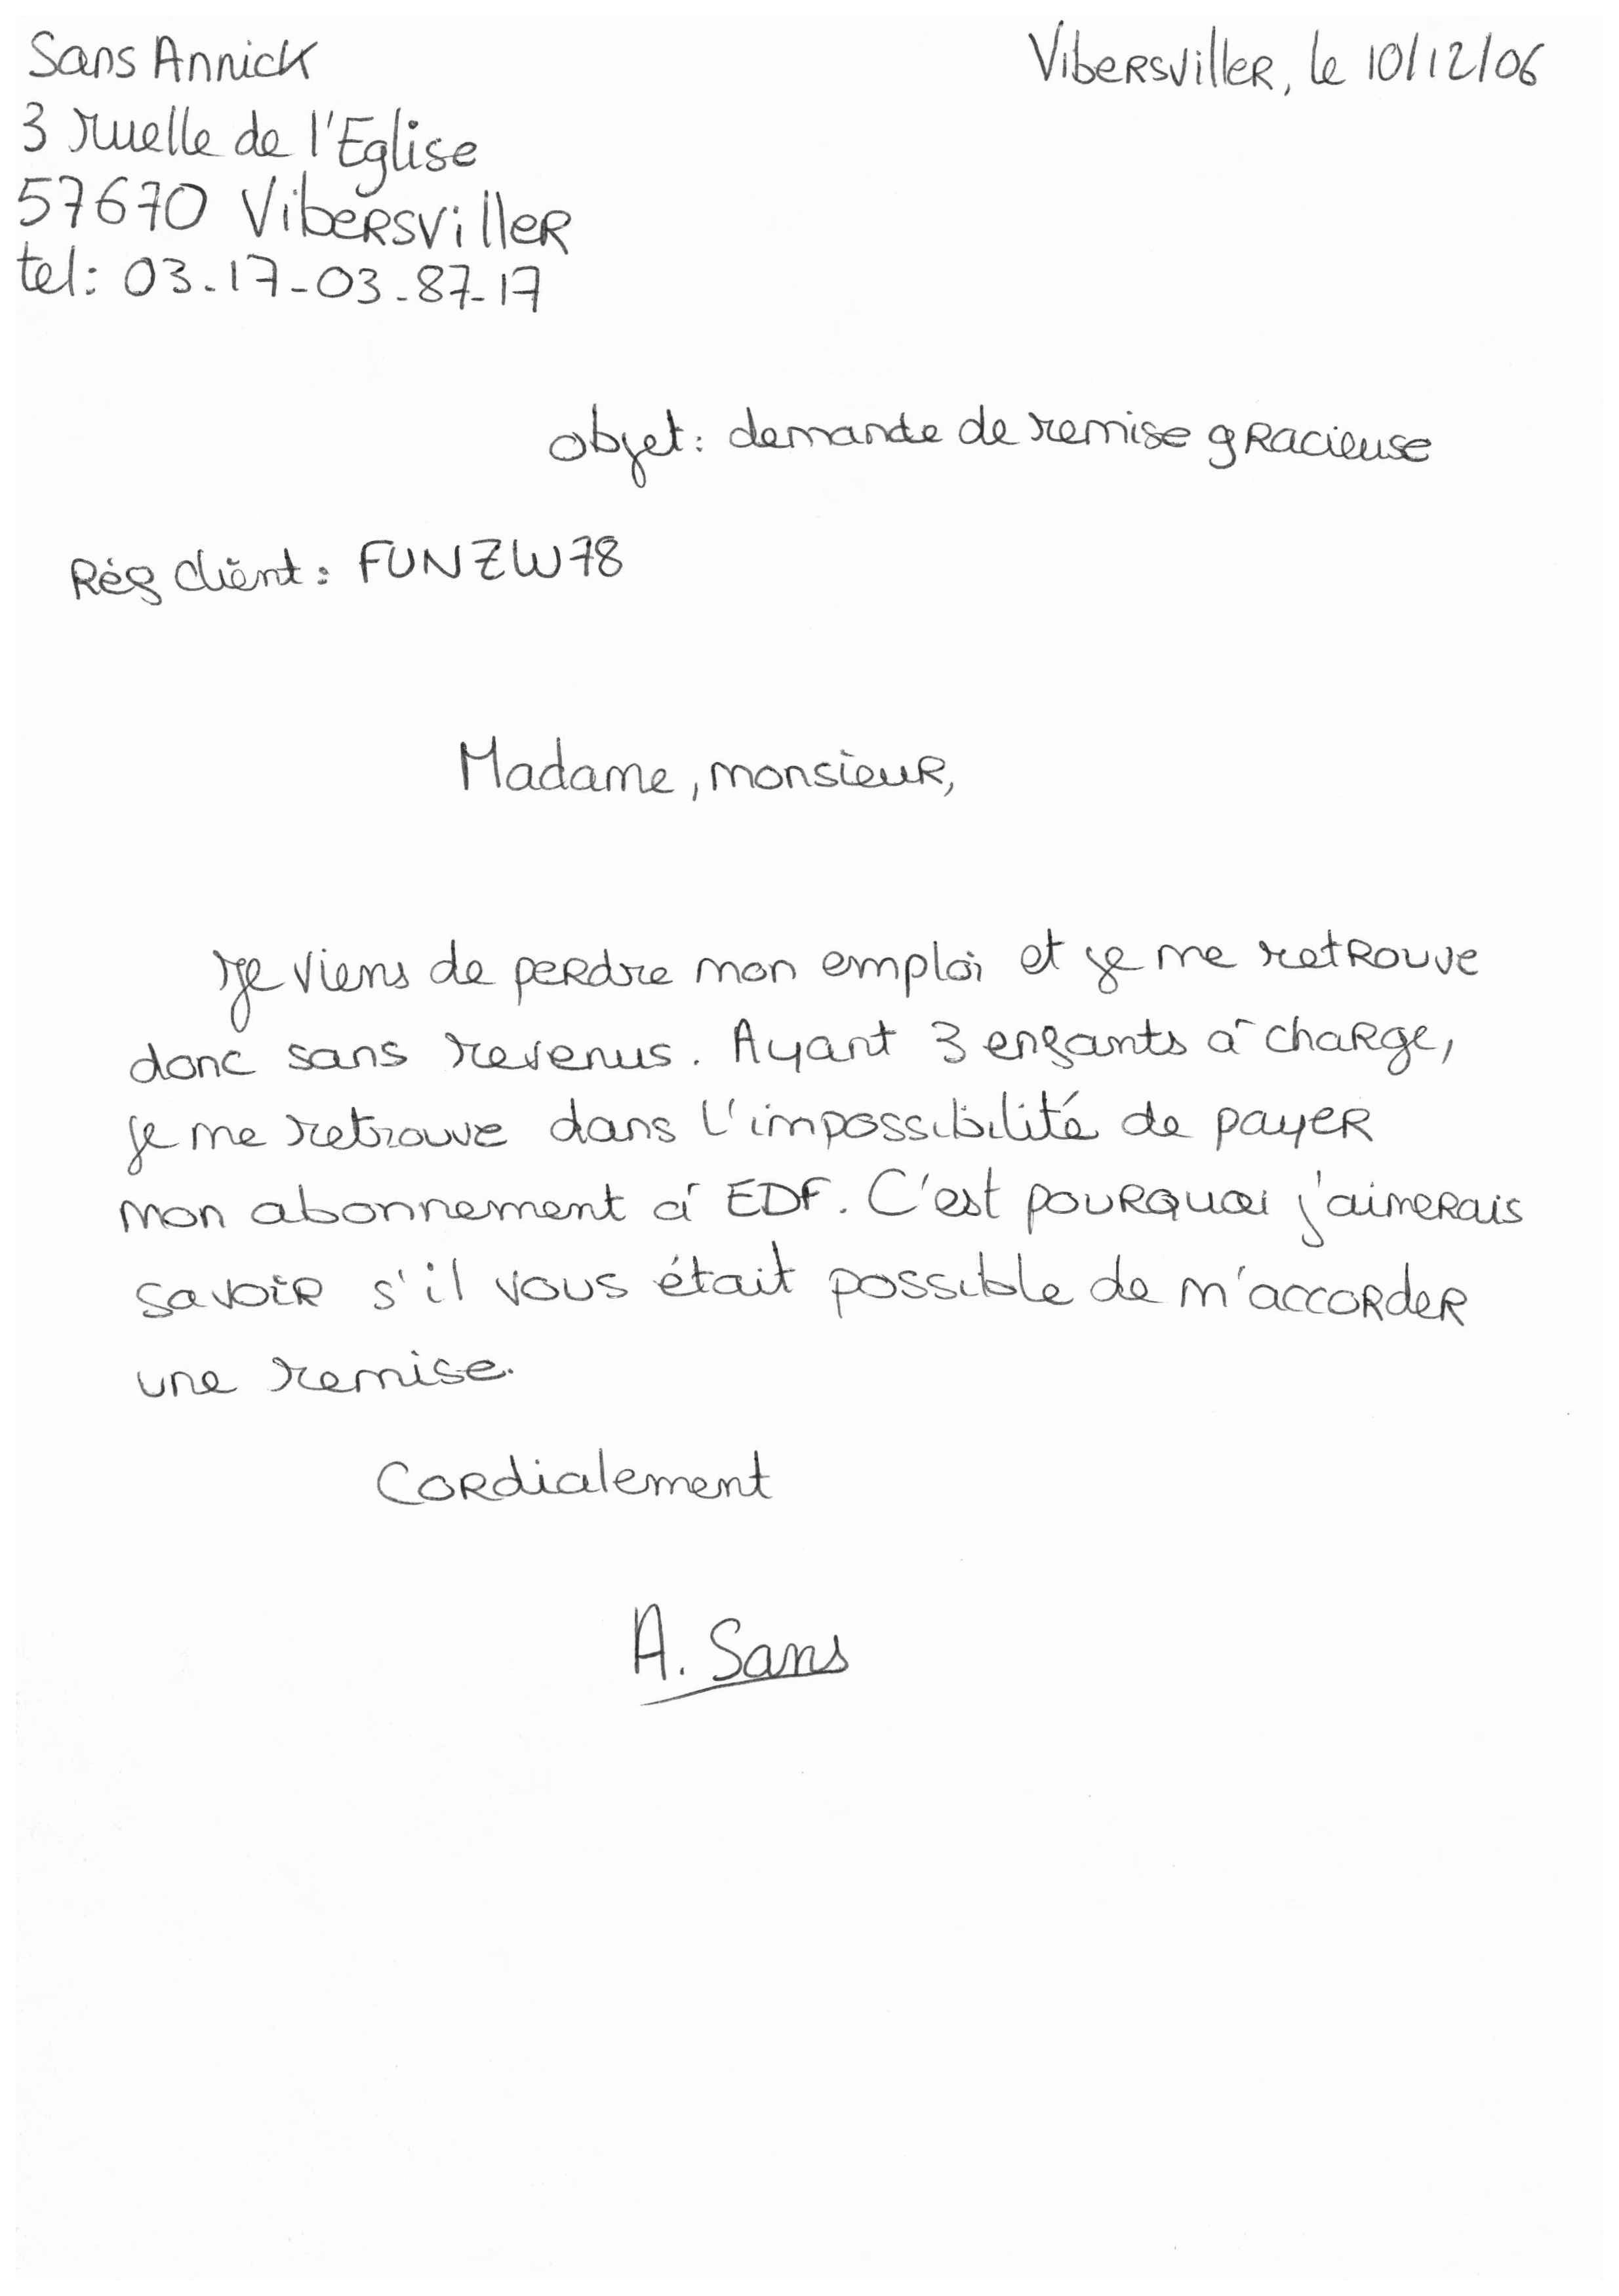 Sans Annick
Vibersviller, le 10/12/06
3 ruelle de l'Eglise
57670 Vibersviller
tel: 03-17-03-87-17
objet: demande de remise gracieuse
Réf client: FUNZW78
Madame, monsieur,
Je viens de perdre mon emploi et je me retrouve
donc sans revenus. Ayant 3 enfants à charge,
je me retrouve dans l'impossibilité de payer
mon abonnement à EDF. C'est pourquoi j'aimerais
savoir s'il vous était possible de m'accorder
une remise.
Cordialement
A. Sans